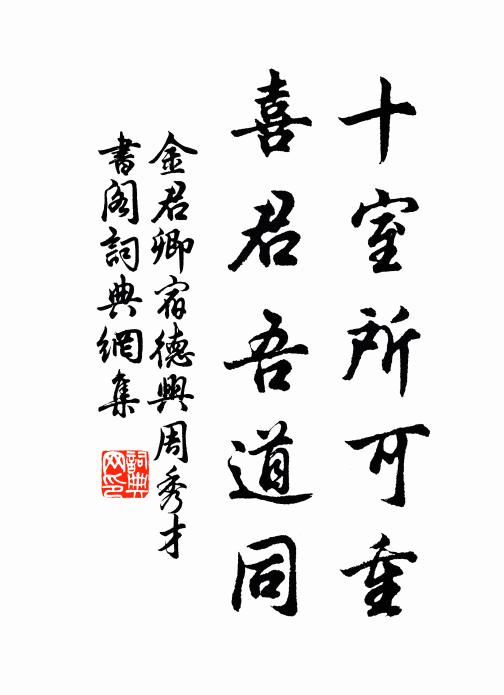 十室所可重
喜君吾道同
金君卿宿德興周秀才
書閣詞典網集
詞典網印